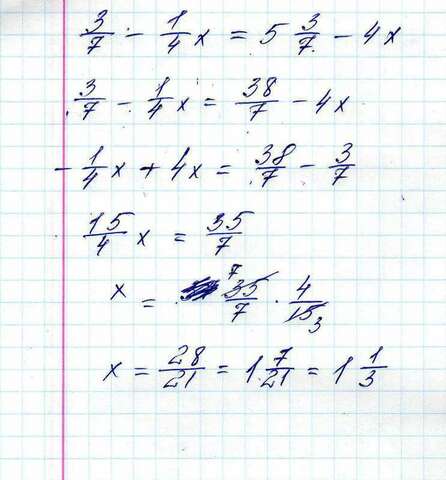 3/7 - 1/4 x = 5 3/7 - 4x
3/7 - 1/4 x = 38/7 - 4x
- 1/4 x + 4x = 38/7 - 3/7
15/4 x = 35/7
x = 7 35/7 · 4/15 3
x = 28/21 = 1 7/21 = 1 1/3